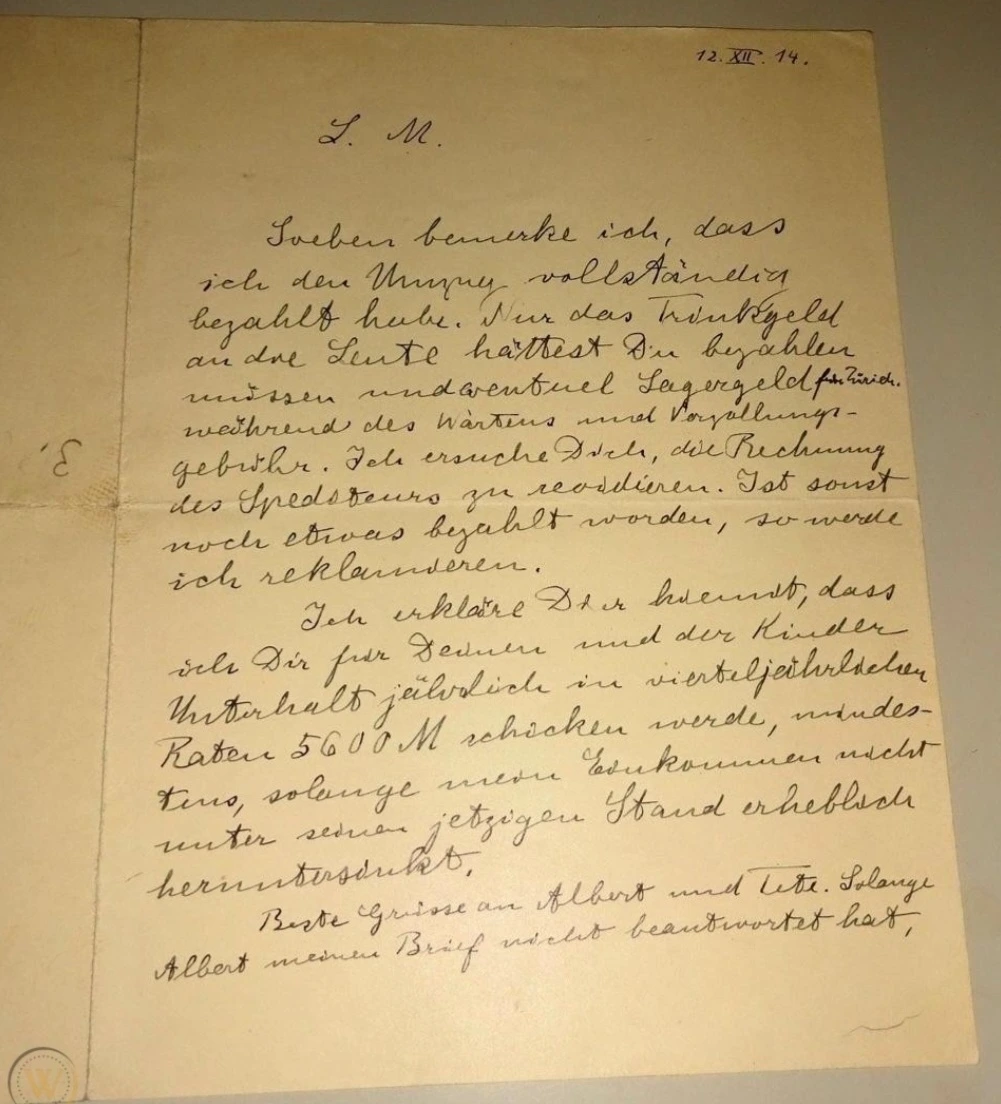 12. XII. 14.
L. M.
Soeben bemerke ich, dass
ich den Umzug vollständig
bezahlt habe. Nur das Trinkgeld
an die Leute hättest Du bezahlen
müssen und eventuel Lagergeld für Zürich.
während des Wartens und Verzollungs-
gebühr. Ich ersuche Dich, die Rechnung
des Spediteurs zu revidieren. Ist sonst
noch etwas bezahlt worden, so werde
ich reklamieren.
Ich erkläre Dir hiemit, dass
ich Dir für Deinen und der Kinder
Unterhalt jährlich in vierteljährlichen
Raten 5600 M schicken werde, mindes-
tens, solange mein Einkommen nicht
unter seinen jetzigen Stand erheblich
heruntersinkt.
Beste Grüsse an Albert und Tete. Solange
Albert meinen Brief nicht beantwortet hat,
W